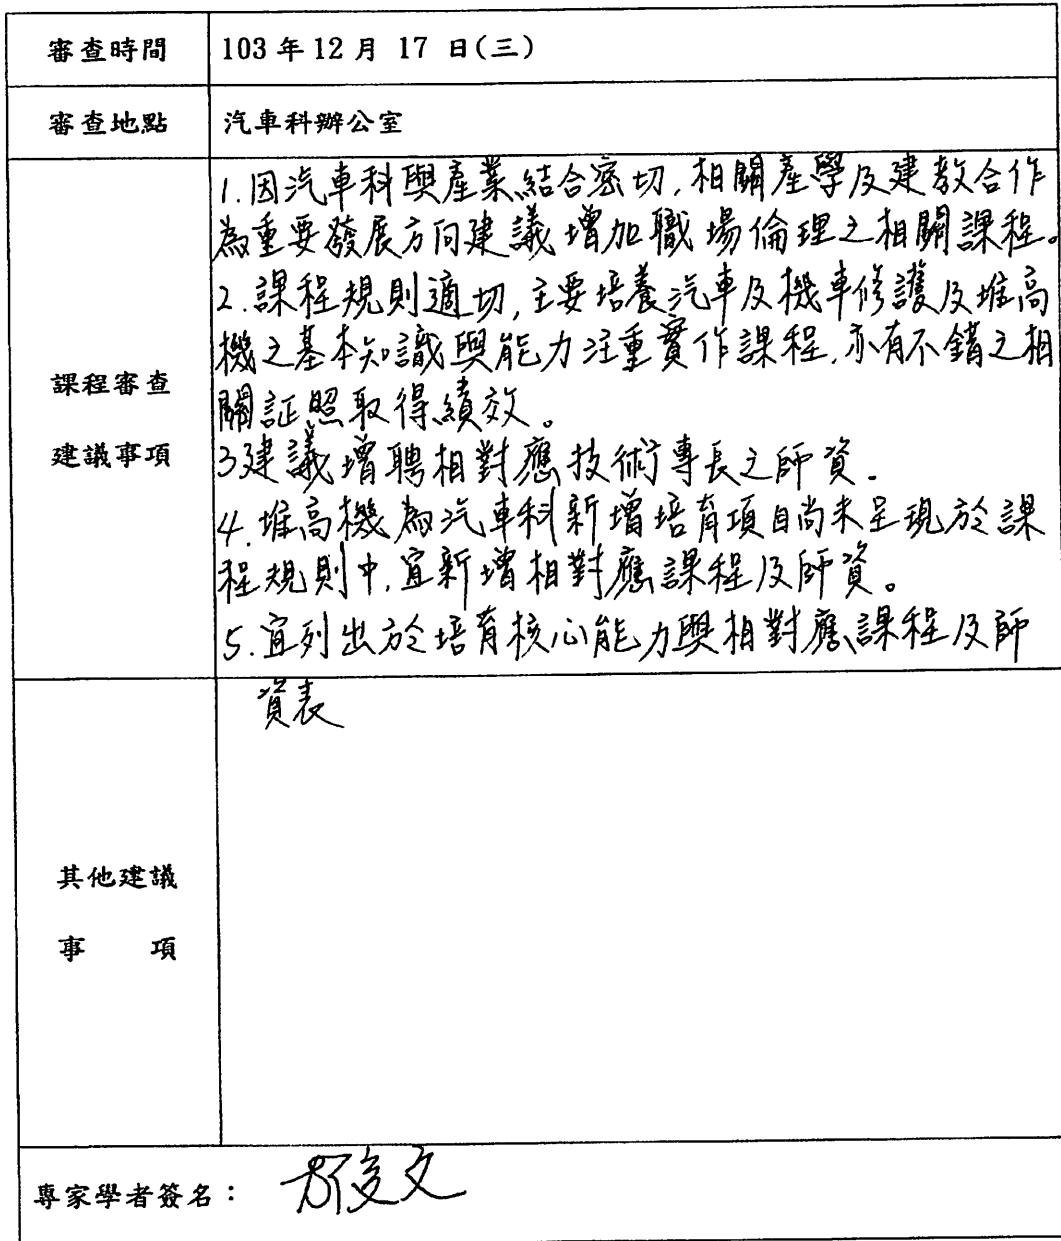 審查時間 103年12月 17 日(三)
審查地點 汽車科辦公室
課程審查
建議事項
1.因汽車科與產業結合密切,相關產學及建教合作
為重要發展方向建議增加職場倫理之相關課程。
2.課程規則適切,主要培養汽車及機車修護及堆高
機之基本知識與能力注重實作課程,亦有不錯之相
關証照取得績效。
3建議增聘相對應技術專長之師資。
4.堆高機為汽車科新增培育項目尚未呈現於課
程規則中,宜新增相對應課程及師資。
5.宜列出於培育核心能力與相對應課程及師
資表
其他建議
事 項
專家學者簽名: